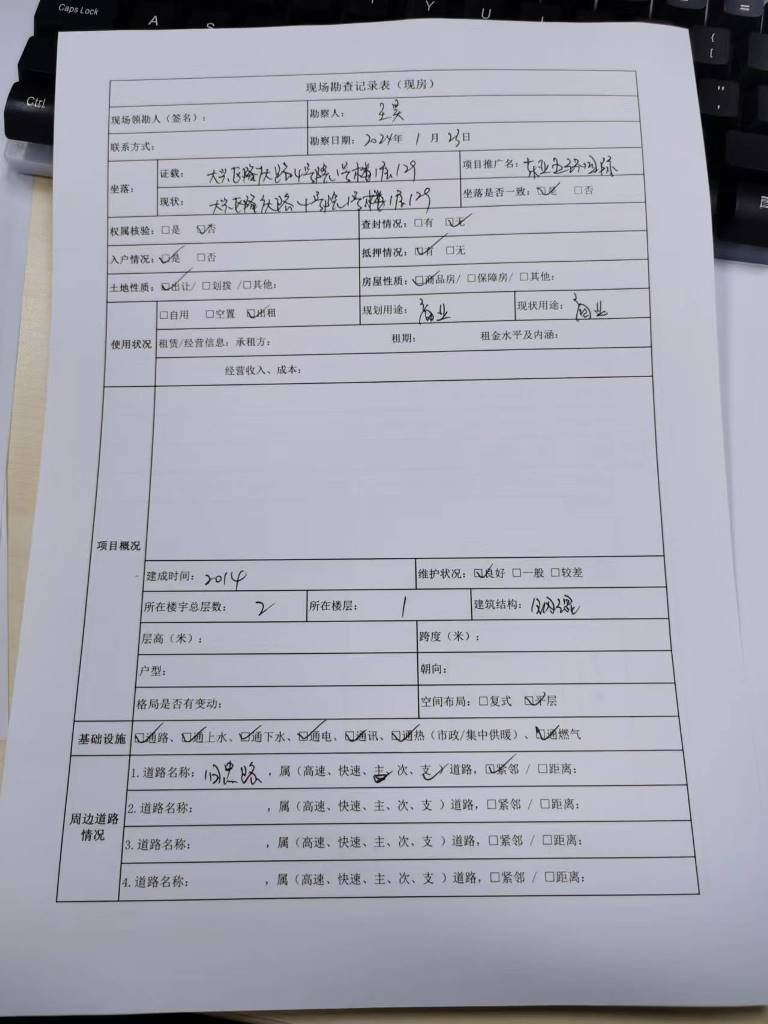 Caps Lock
A
S
Y
U
Ctrl
现场勘查记录表（现房）
现场领勘人（签名）： 勘察人：
联系方式： 勘察日期：2024年 1 月 23日
坐落： 证载： 4号院1号楼1层129 项目推广名： 国际
现状： 4号院1号楼1层129 坐落是否一致：☑是 □否
权属核验：□是 ☑否 查封情况：□有 ☑无
入户情况：☑是 □否 抵押情况：☑有 □无
土地性质：☑出让/ □划拨 /□其他： 房屋性质：☑商品房/ □保障房/ □其他：
使用状况 □自用 □空置 ☑出租 规划用途：商业 现状用途：商业
租赁/经营信息：承租方： 租期： 租金水平及内涵：
经营收入、成本：
项目概况
建成时间：2014 维护状况：☑良好 □一般 □较差
所在楼宇总层数：2 所在楼层：1 建筑结构：钢混
层高（米）： 跨度（米）：
户型： 朝向：
格局是否有变动： 空间布局：□复式 ☑平层
基础设施 ☑通路、☑通上水、☑通下水、☑通电、☑通讯、☑通热（市政/集中供暖）、☑通燃气
周边道路情况 1.道路名称： 路，属（高速、快速、主、次、支）道路，☑紧邻 / □距离：
2.道路名称： ，属（高速、快速、主、次、支 ）道路，□紧邻 / □距离：
3.道路名称： ，属（高速、快速、主、次、支 ）道路，□紧邻 / □距离：
4.道路名称： ，属（高速、快速、主、次、支 ）道路，□紧邻 / □距离：